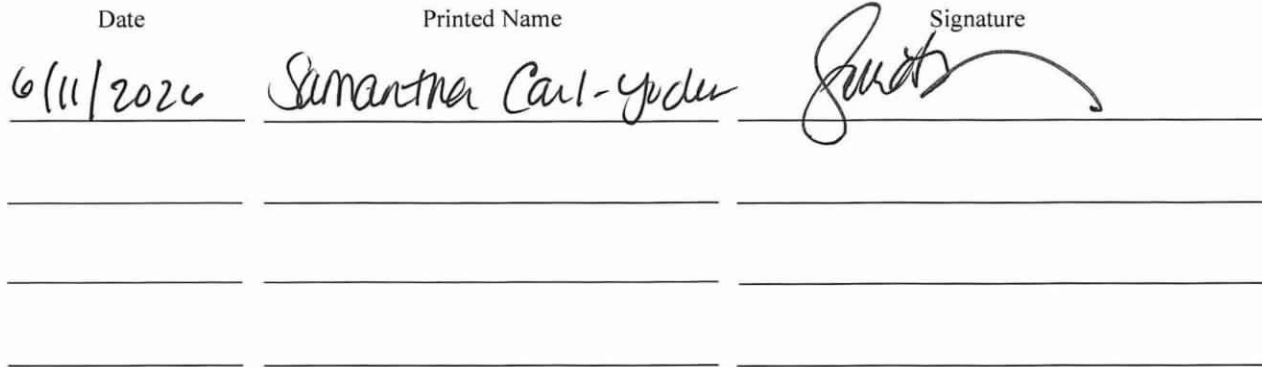 Date Printed Name Signature
6/11/2026 Samantha Carl-Yoder